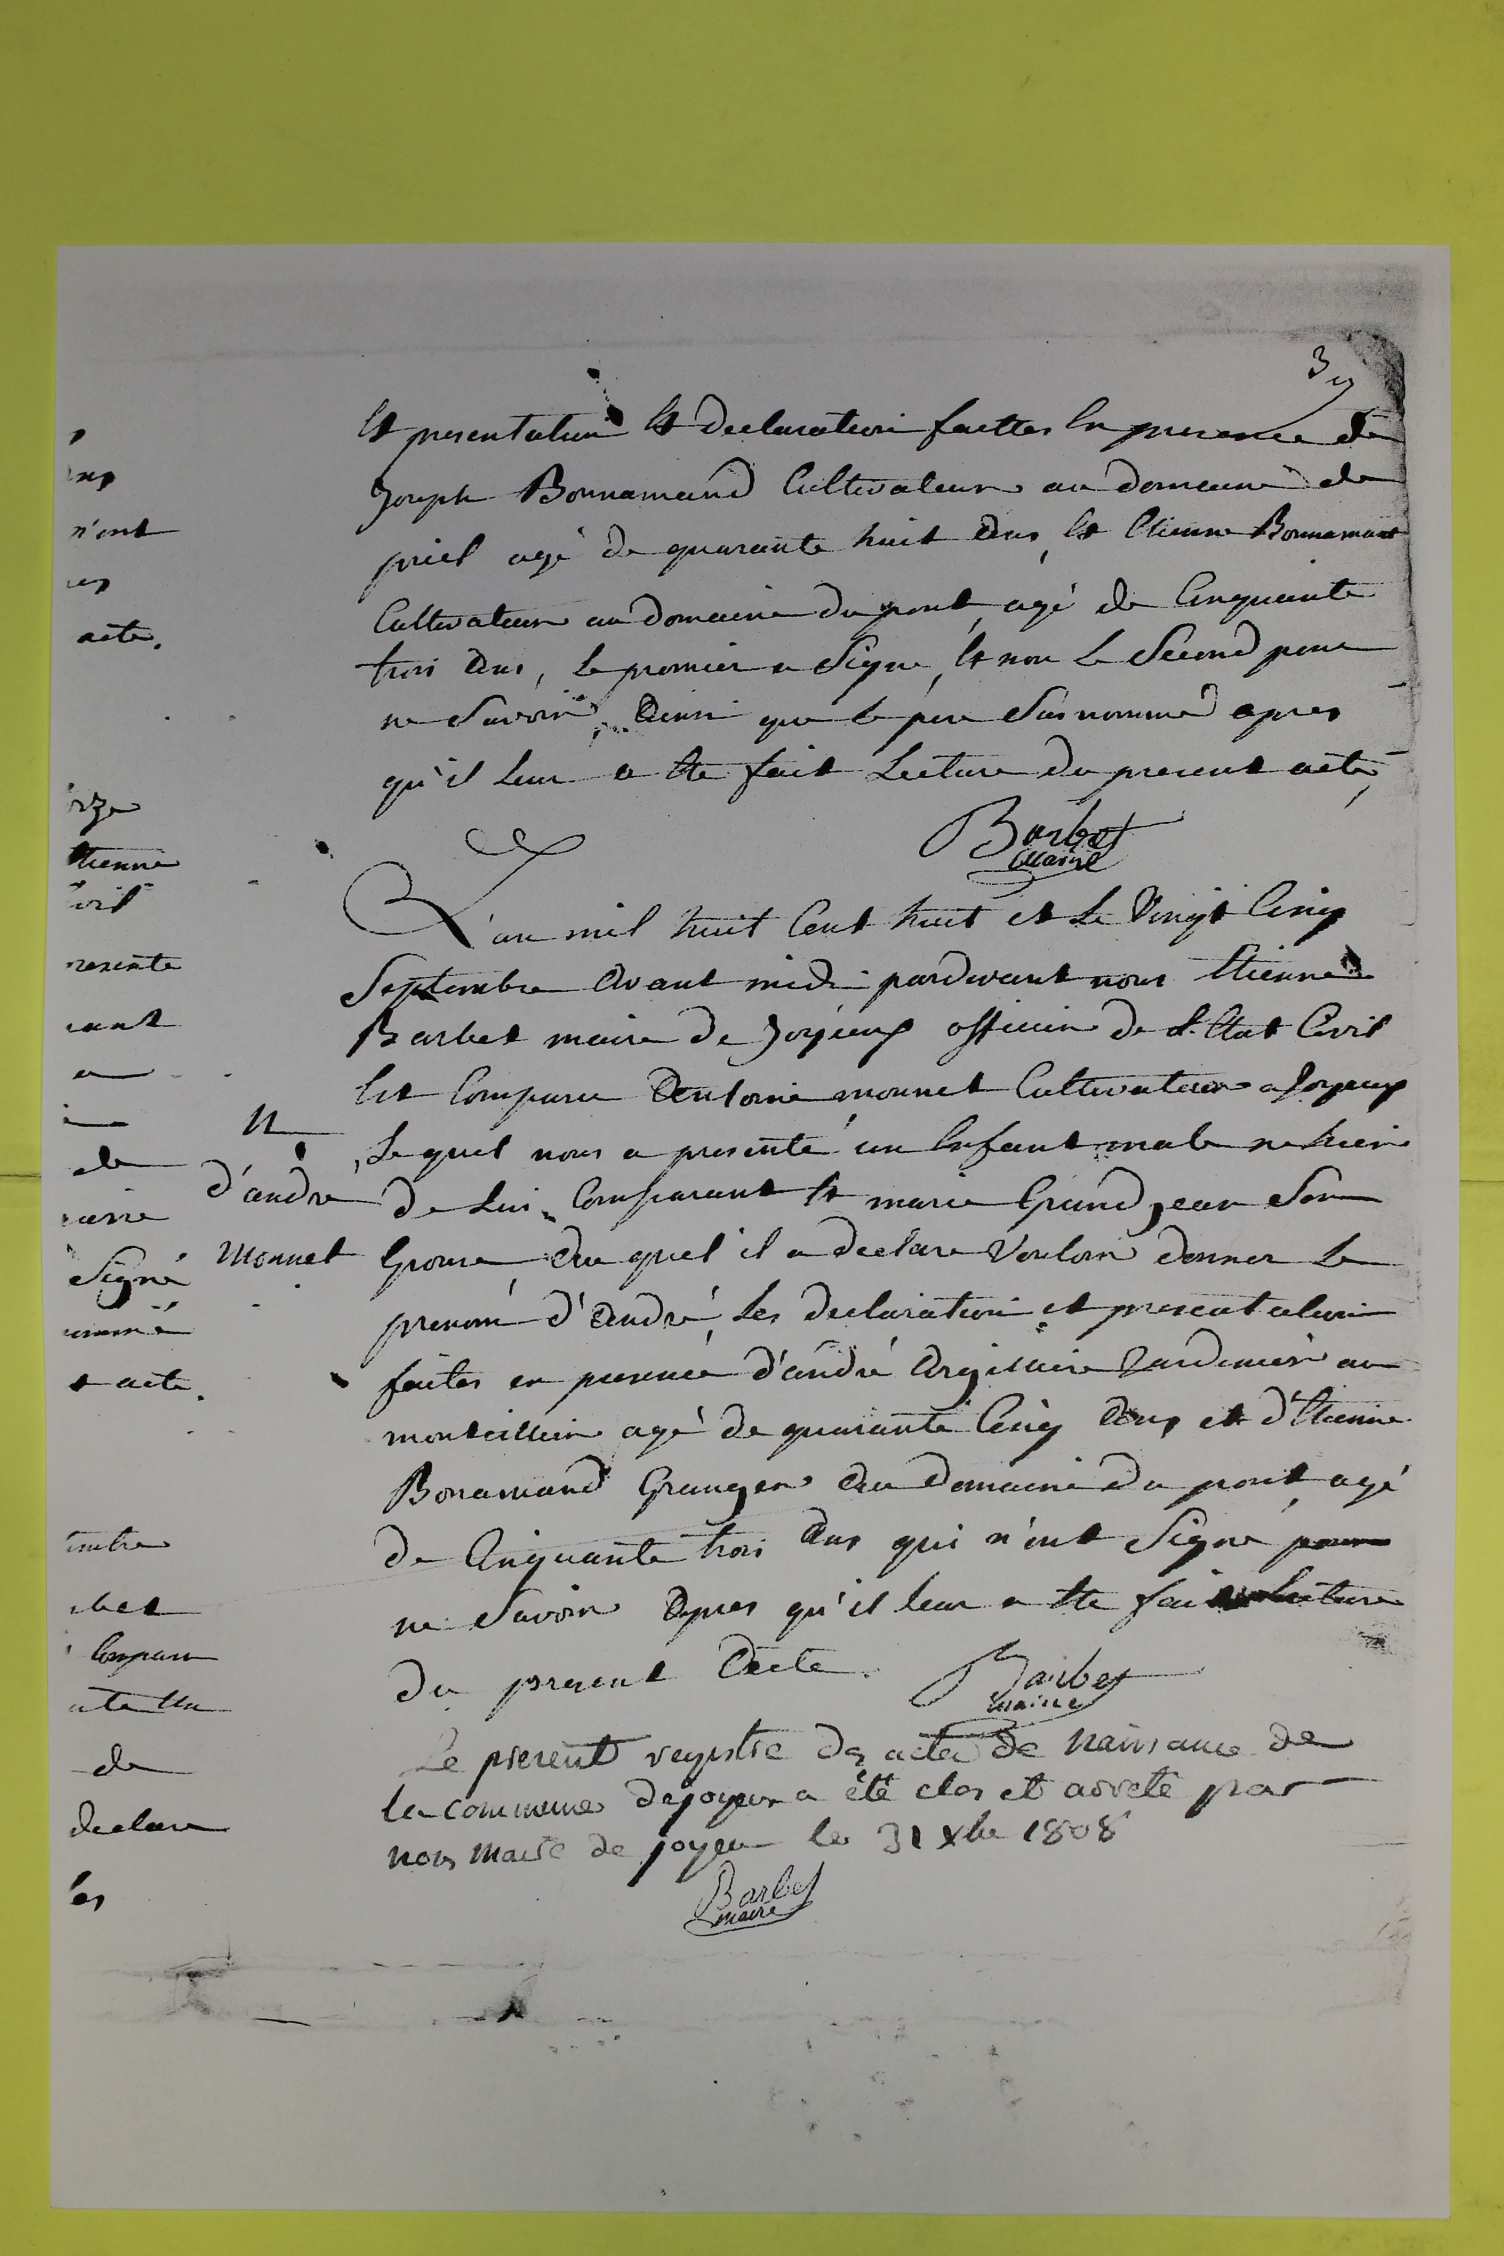 3
p
ns
n'ont
es
acte.
rze
tienne
ivil
resente
rant
a
de
arie
Signé
ommé
t acte.
embre
rbet
Comparu
ente un
de
declare
les
Et presentation Et declaration faittes En presence de
Joseph Bonnamand Cultivateur au domaine de
priel agé de quarante huit Ans, Et Etienne Bonnamant
Cultivateur au domaine du pont, agé de Cinquante
trois Ans, le premier a Signé, Et non le Second pour
ne Savoir, Ainsi que le pere Susnommé apres
qu'il leur a Ete fait Lecture du present acte,
Barbet
Maire
N
d'andré
Monnet
L'an mil huit Cent huit et Le Vingt Cinq
Septembre Avant midi pardevant nous Etienne
Barbet maire de Joyeux officier de L'Etat Civil
Est Comparu Antoine monnet Cultivateur a Joyeux
Lequel nous a presenté un Enfant male ne hier
de Lui Comparant Et marie Grand jean Son
Epouse Au quel il a declaré Vouloir donner Le
prenom d'André, Les declaration et presentation
faites en presence d'andré Argilaire Jardinier au
montellier agé de quarante Cinq Ans et d'Etienne
Bonamand Granger Au Domaine du pont, agé
de Cinquante trois Ans qui n'ont Signé pour
ne Savoir Apres qu'il leur a Ete fait Lecture
du present Acte.
Barbet
maire
Le present registre des actes de Naissance de
la commune de joyeux a été clos et arreté par
nous Maire de joyeux le 31 Xbe 1808
Barbet
maire